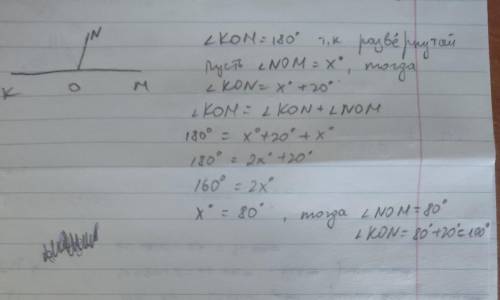 N
K O M
∠KOM = 180° т.к развёрнутый
Пусть ∠NOM = x°, тогда
∠KON = x° + 20°
∠KOM = ∠KON + ∠NOM
180° = x° + 20° + x°
180° = 2x° + 20°
160° = 2x°
x° = 80°, тогда ∠NOM = 80°
∠KON = 80° + 20° = 100°